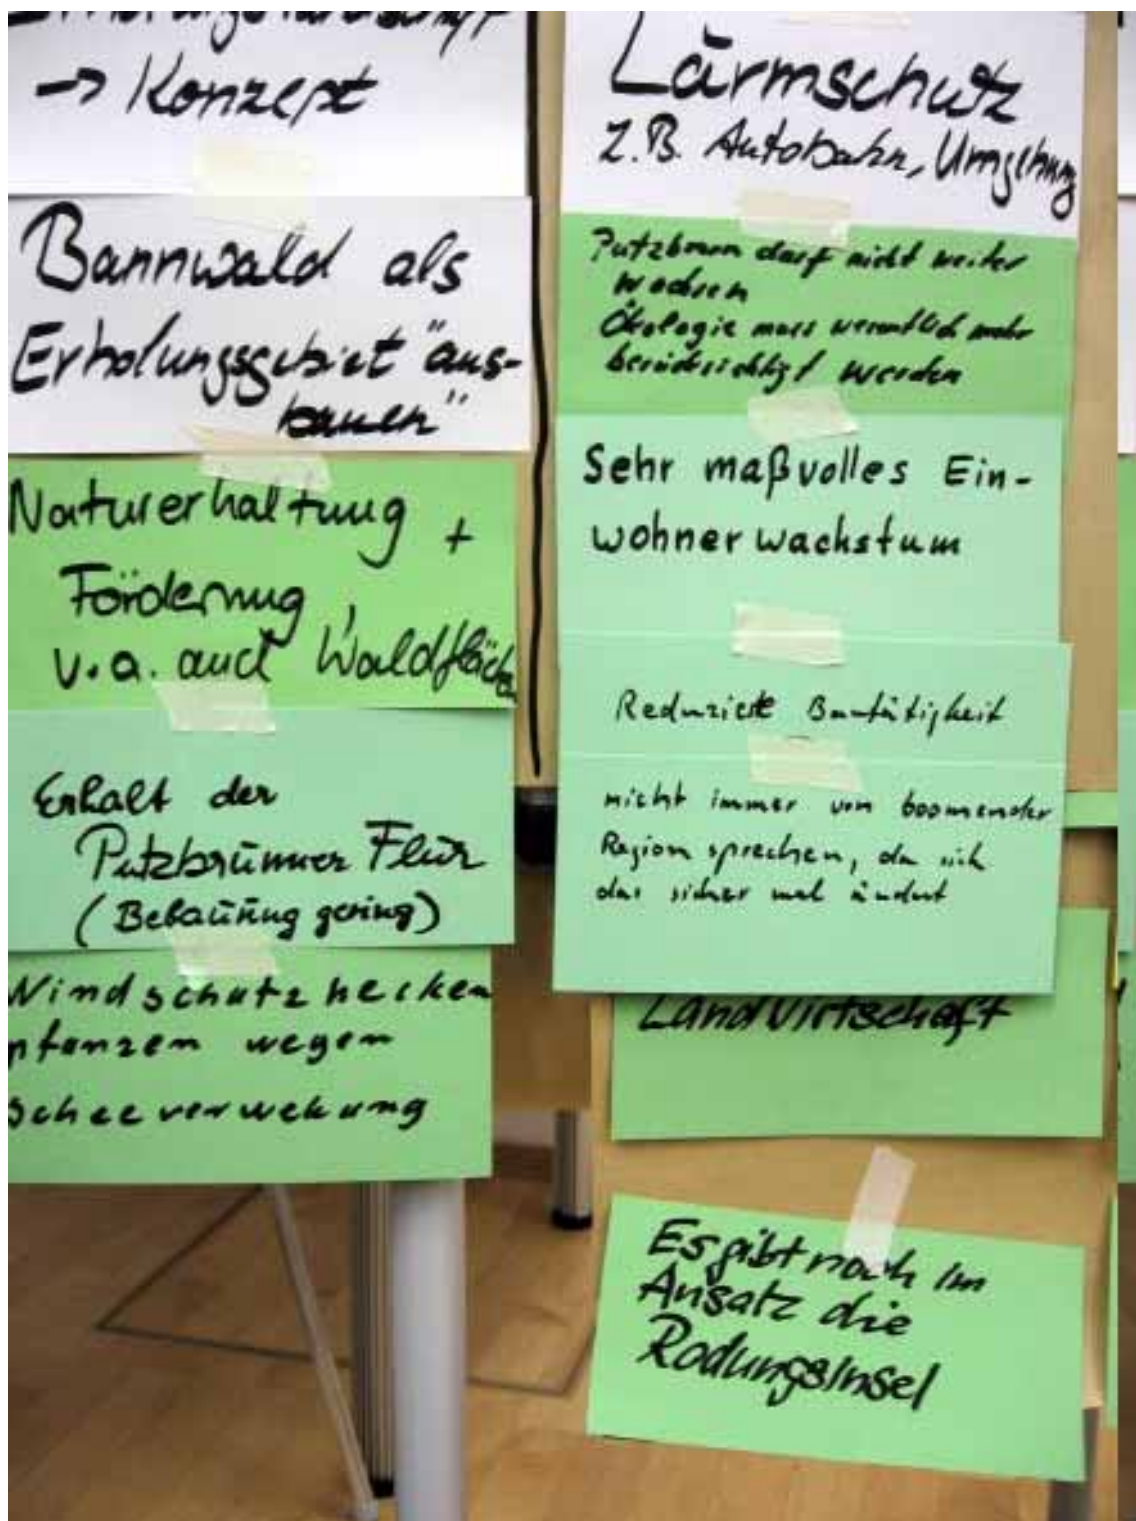 → Konzept
Bannwald als
Erholungsgebiet "aus-
bauen"
Naturerhaltung +
Förderung,
v.a. auch Waldfläche
Erhalt der
Putzbrunner Flur
(Bebauung gering)
Windschutzhecken
pflanzen wegen
Scheeverwehung
Lärmschutz
z.B. Autobahn, Umgehung
Putzbrunn darf nicht weiter
wachsen
Ökologie muss wesentlich mehr
berücksichtigt werden
Sehr maßvolles Ein-
wohnerwachstum
Reduzierte Bautätigkeit
nicht immer von boomender
Region sprechen, da sich
das sicher mal ändert
Landwirtschaft
Es gibt noch im
Ansatz die
Rodungsinsel